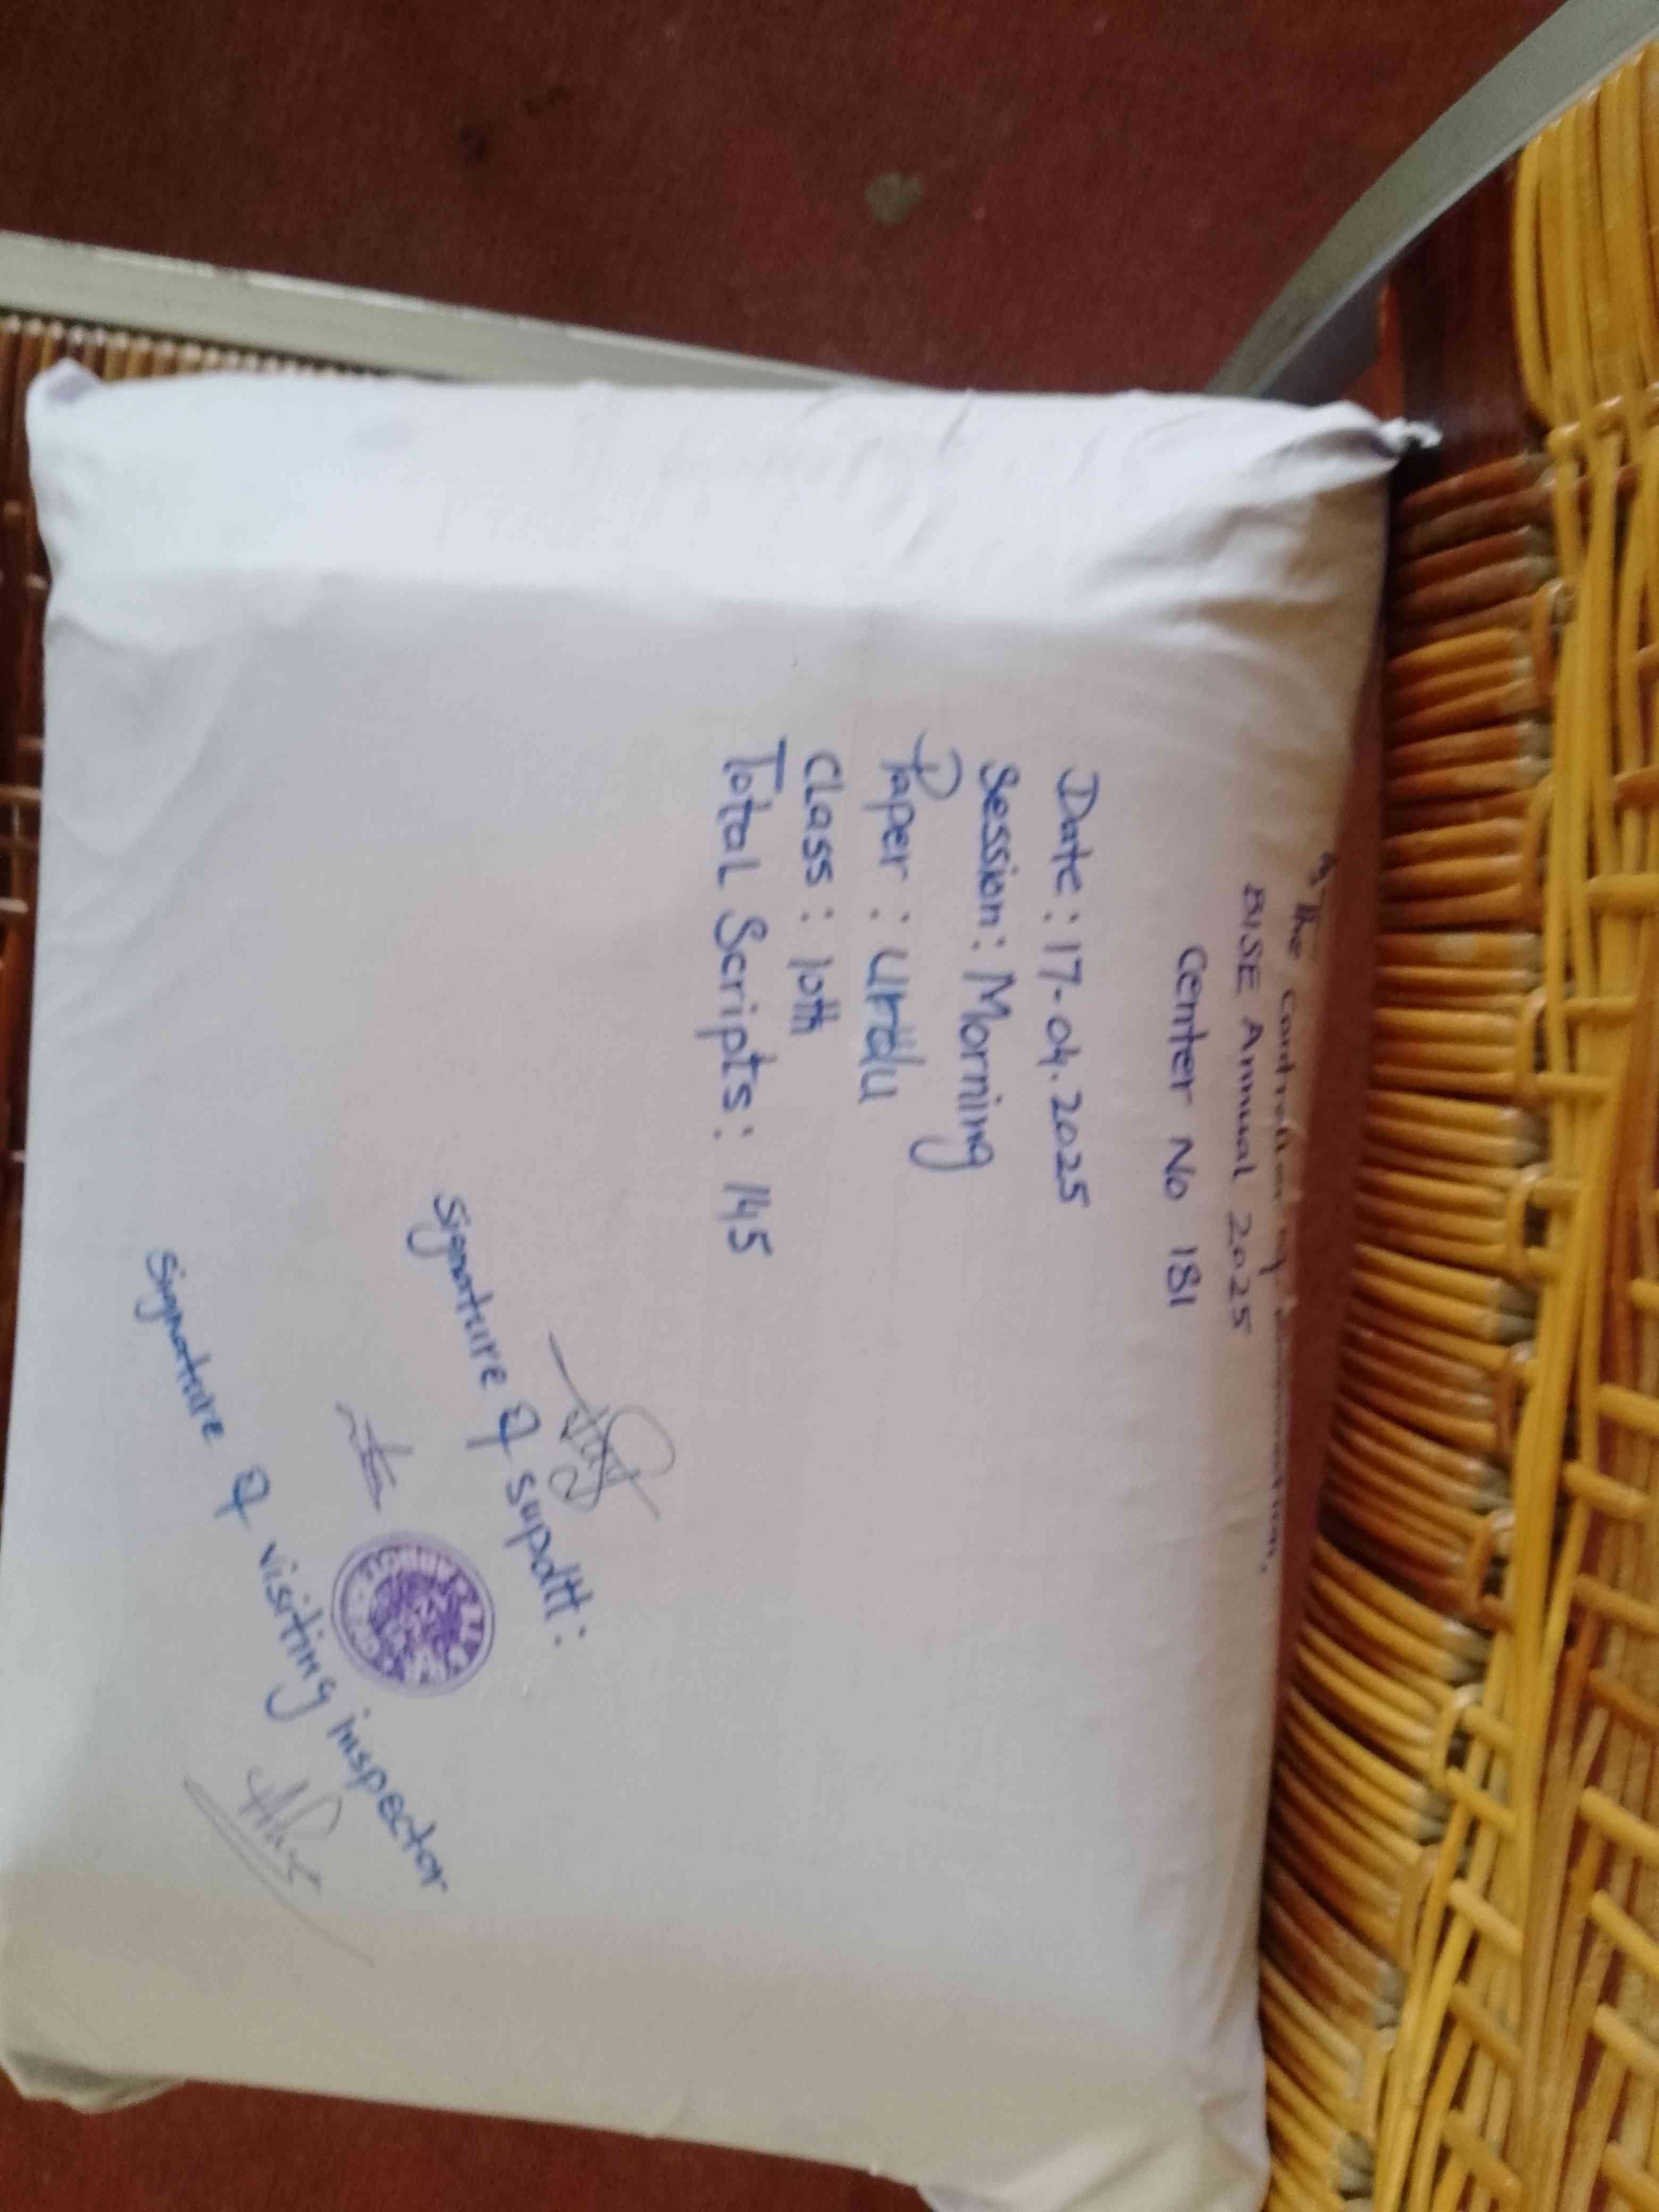 The Controller of Examination,
BISE Annual 2025
Center No 181
Date : 17-04.2025
Session : Morning
Paper : Urdu
Class : 10th
Total Scripts : 145
Signature of supdtt :
Signature of visiting inspector